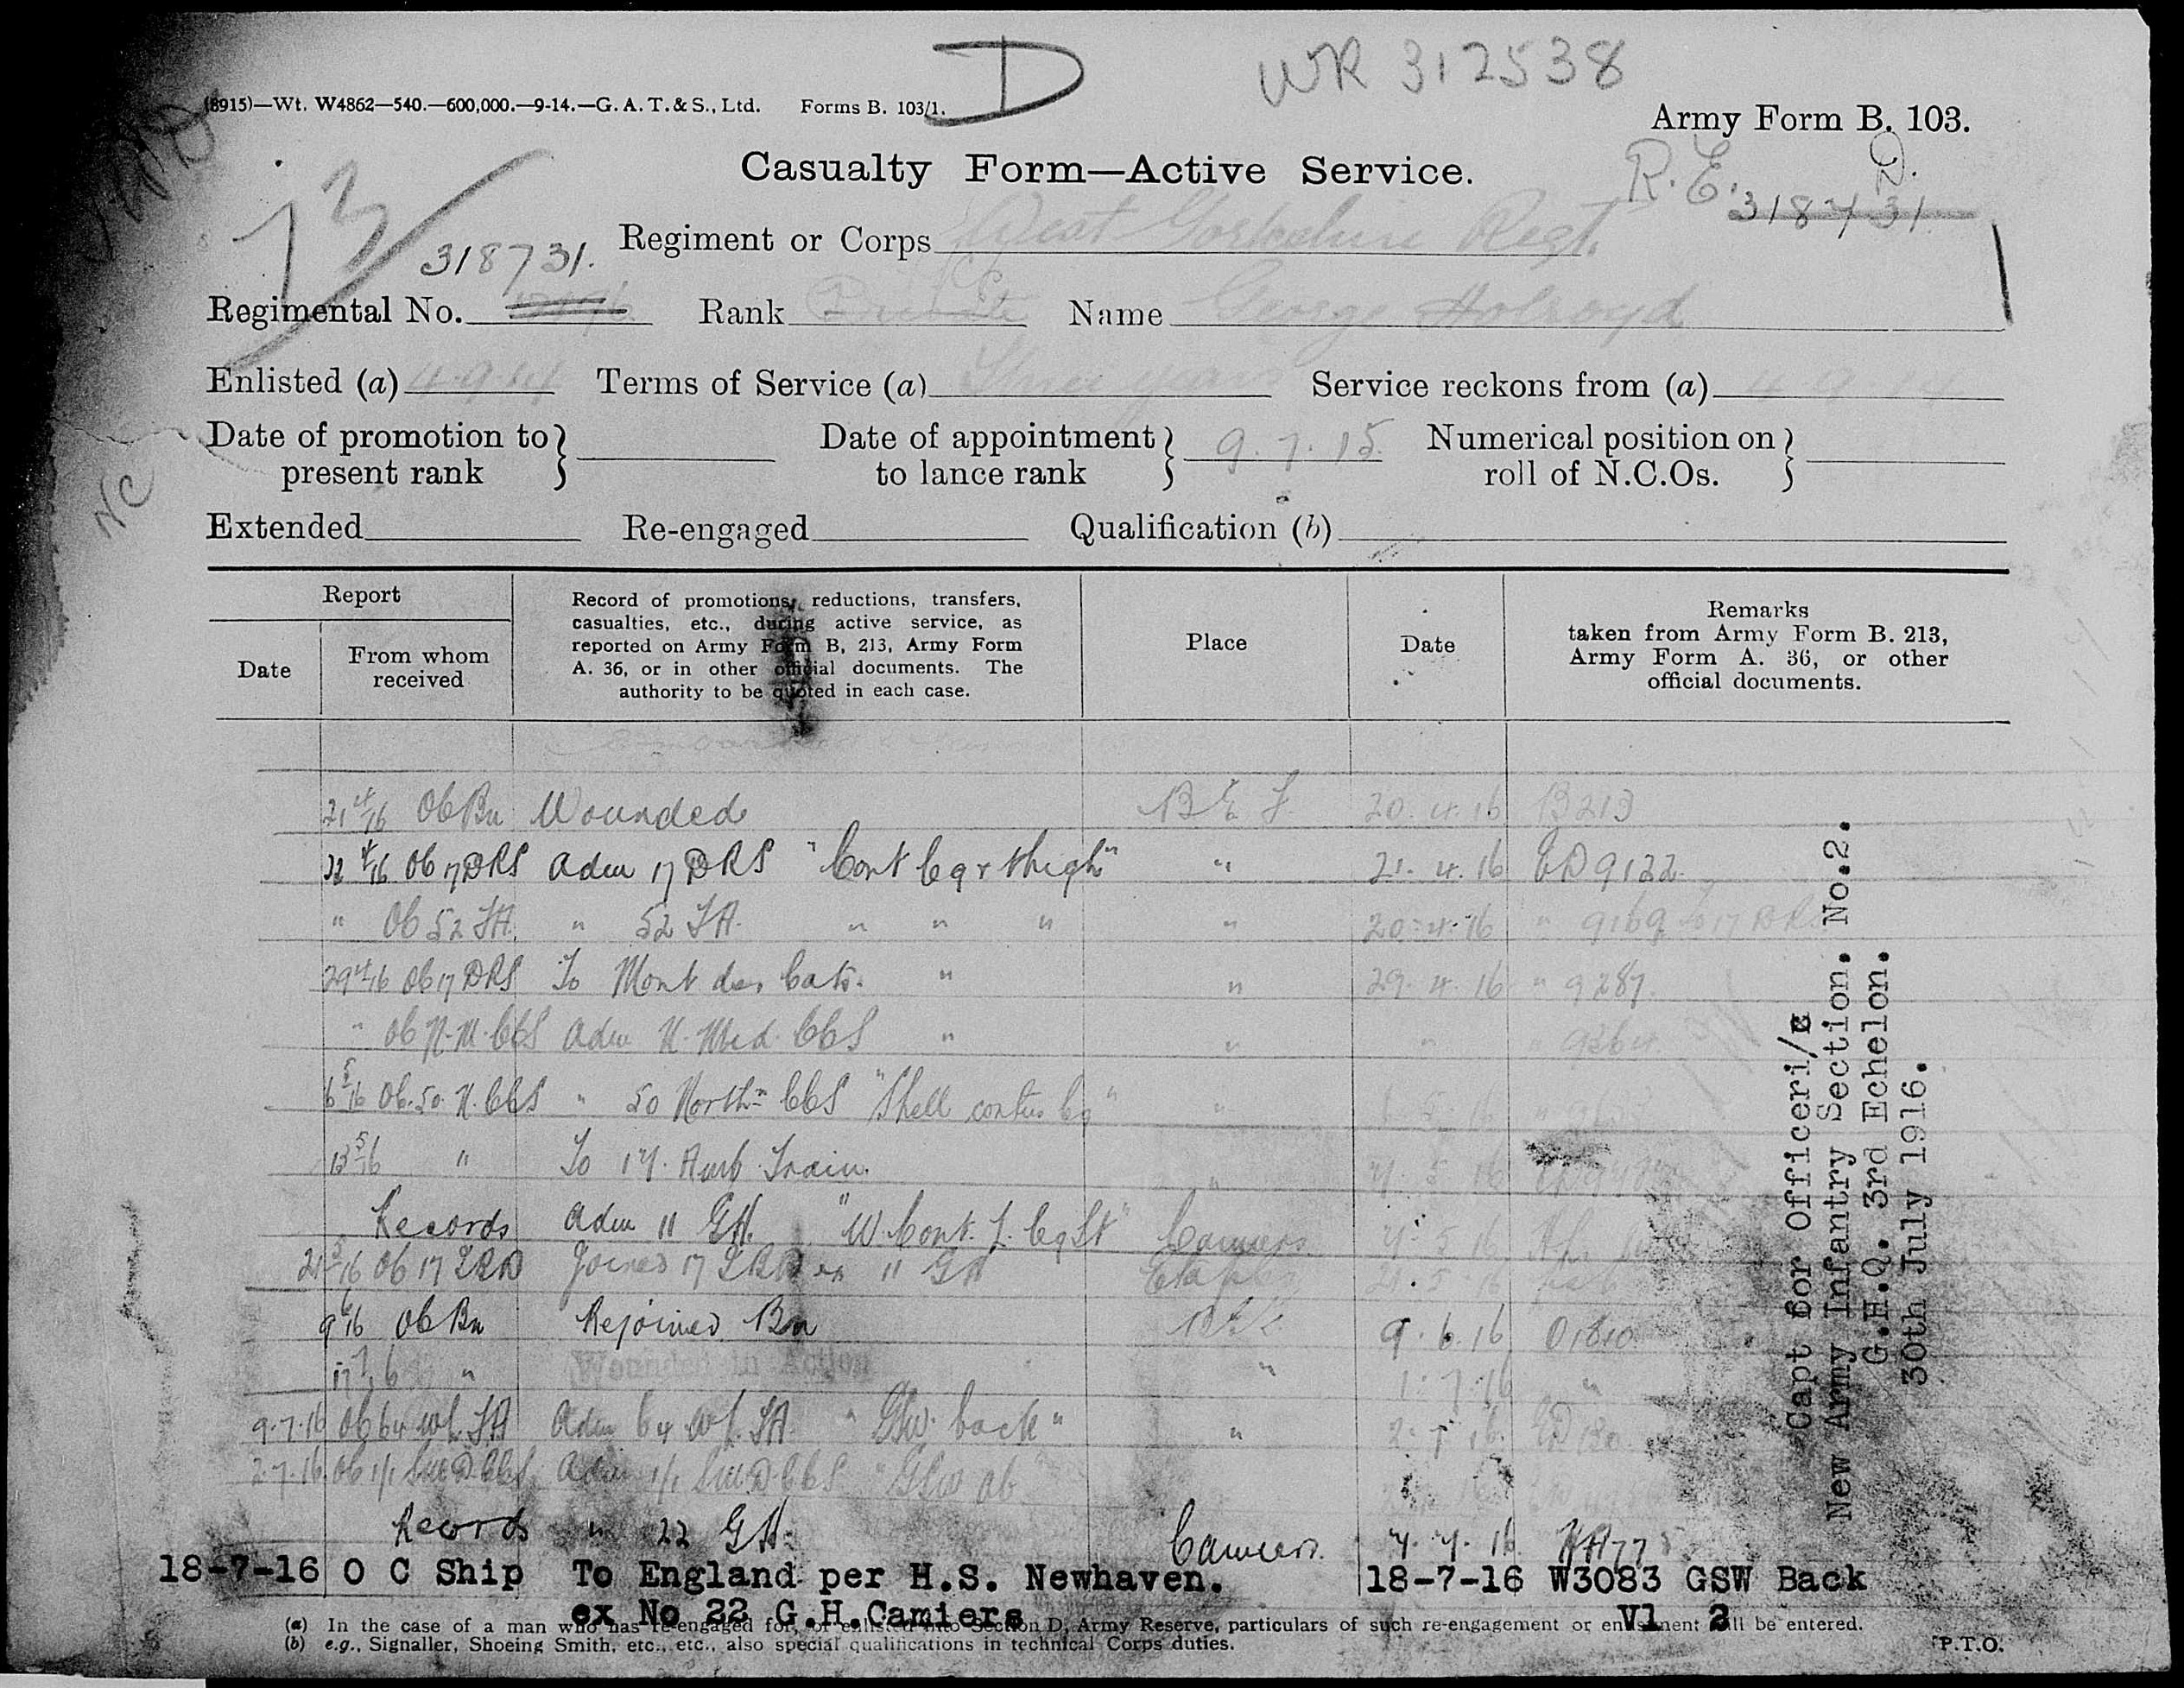 WR 312538
D
(8915)—Wt. W4862—540.—600,000.—9-14.—G. A. T. & S., Ltd. Forms B. 103/1.
Army Form B. 103.
Casualty Form—Active Service.
R.E. D.
318731
73
318731.
Regiment or Corps West Yorkshire Regt.
Regimental No. Rank Private Name George Holroyd
Enlisted (a) 4.9.14 Terms of Service (a) Three years Service reckons from (a) 4.9.14
Date of promotion to present rank } Date of appointment to lance rank } 9.7.15. Numerical position on roll of N.C.Os. }
NC
Extended Re-engaged Qualification (b)
Report
Date
From whom received
Record of promotions, reductions, transfers, casualties, etc., during active service, as reported on Army Form B, 213, Army Form A. 36, or in other official documents. The authority to be quoted in each case.
Place
Date
Remarks taken from Army Form B. 213, Army Form A. 36, or other official documents.
21 4/16 OC Bn Wounded B E F 20.4.16 B213
22 4/16 OC 17 DRS Adm 17 DRS "Cont leg & thigh" " 21.4.16 ED 9122
" OC 52 FA. " 52 FA. " " " " 20.4.16 " 9169 to 17 DRS
29 4/16 OC 17 DRS To Mont des Cats. " " 29.4.16 " 9287.
" OC N.M. CCS Adm N. Mid. CCS " " " " 9264
6 5/16 OC. 50 N. CCS " 50 Northn CCS "Shell contus leg" "
13 5/16 " To 17. Amb. Train. "
Records Adm 11 GH. "W. Cont. L. leg St" Camiers
21 5/16 OC 17 IBD Joined 17 IBD ex 11 GH Etaples 21.5.16
9 6/16 OC Bn Rejoined Bn BEF 9.6.16 O1810
" Wounded in Action " 1.7.16 "
9.7.16 OC 64 FA Adm 64 FA. "GSW back" " 2.7.16. ED 180.
2.7.16. OC 1/1 CCS Adm 1/1 CCS "GSW
Records " 22 GH. Camiers. 7.7.16
18-7-16 O C Ship To England per H.S. Newhaven. 18-7-16 W3083 GSW Back
ex No 22 G.H.Camiers Vl 2
Capt for Officer i/c
New Army Infantry Section. No.2.
G.H.Q. 3rd Echelon.
30th July 1916.
(a) In the case of a man who has re-engaged for, or enlisted into Section D, Army Reserve, particulars of such re-engagement or enlistment will be entered.
(b) e.g., Signaller, Shoeing Smith, etc., etc., also special qualifications in technical Corps duties.
P.T.O.